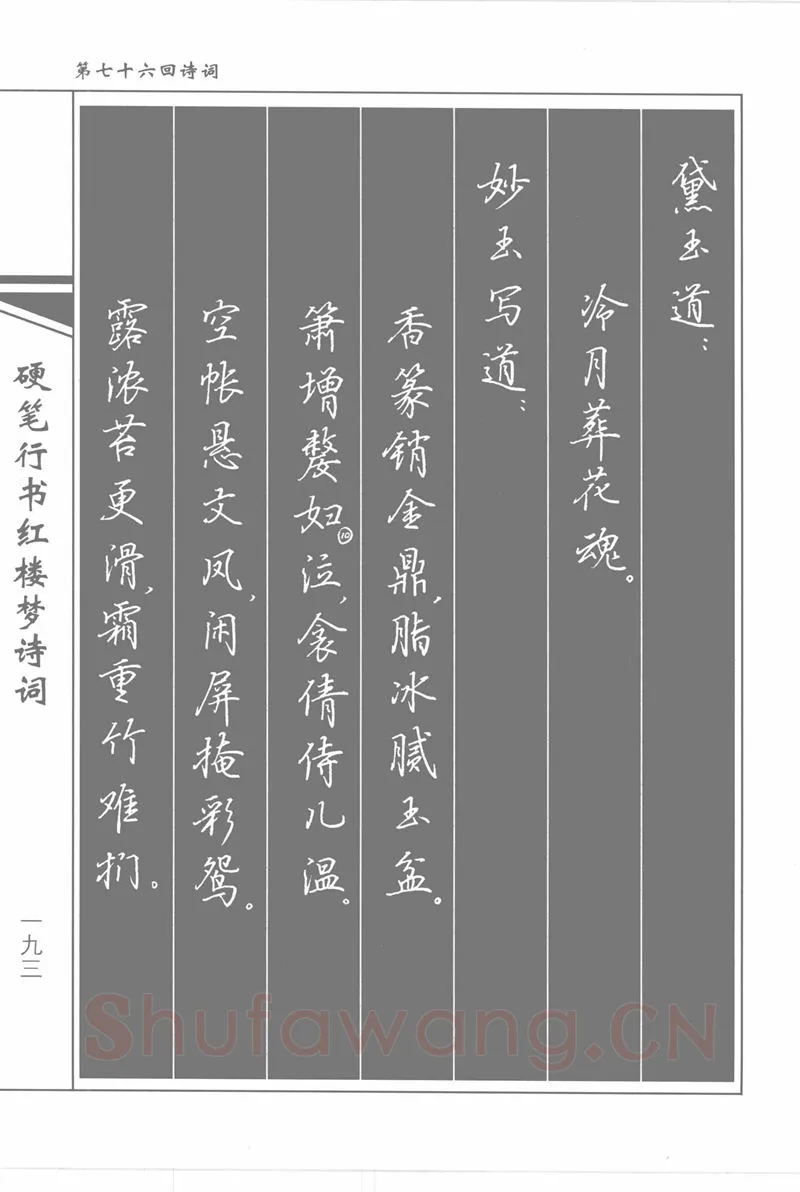 第七十六回诗词
黛玉道：
冷月葬花魂。
妙玉写道：
香篆销金鼎，脂冰腻玉盆。
箫增嫠妇⑩泣，衾倩侍儿温。
空帐悬文凤，闲屏掩彩鸳。
露浓苔更滑，霜重竹难扪。
硬笔行书红楼梦诗词
一九三
Shufawang.CN